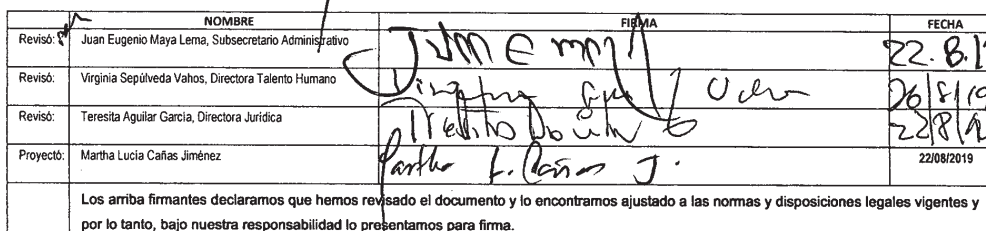 NOMBRE FIRMA FECHA
Revisó: Juan Eugenio Maya Lema, Subsecretario Administrativo 22.8.1
Revisó: Virginia Sepúlveda Vahos, Directora Talento Humano 26/8/19
Revisó: Teresita Aguilar Garcia, Directora Jurídica 22/8/19
Proyectó: Martha Lucia Cañas Jiménez Martha L. Cañas J. 22/08/2019
Los arriba firmantes declaramos que hemos revisado el documento y lo encontramos ajustado a las normas y disposiciones legales vigentes y
por lo tanto, bajo nuestra responsabilidad lo presentamos para firma.